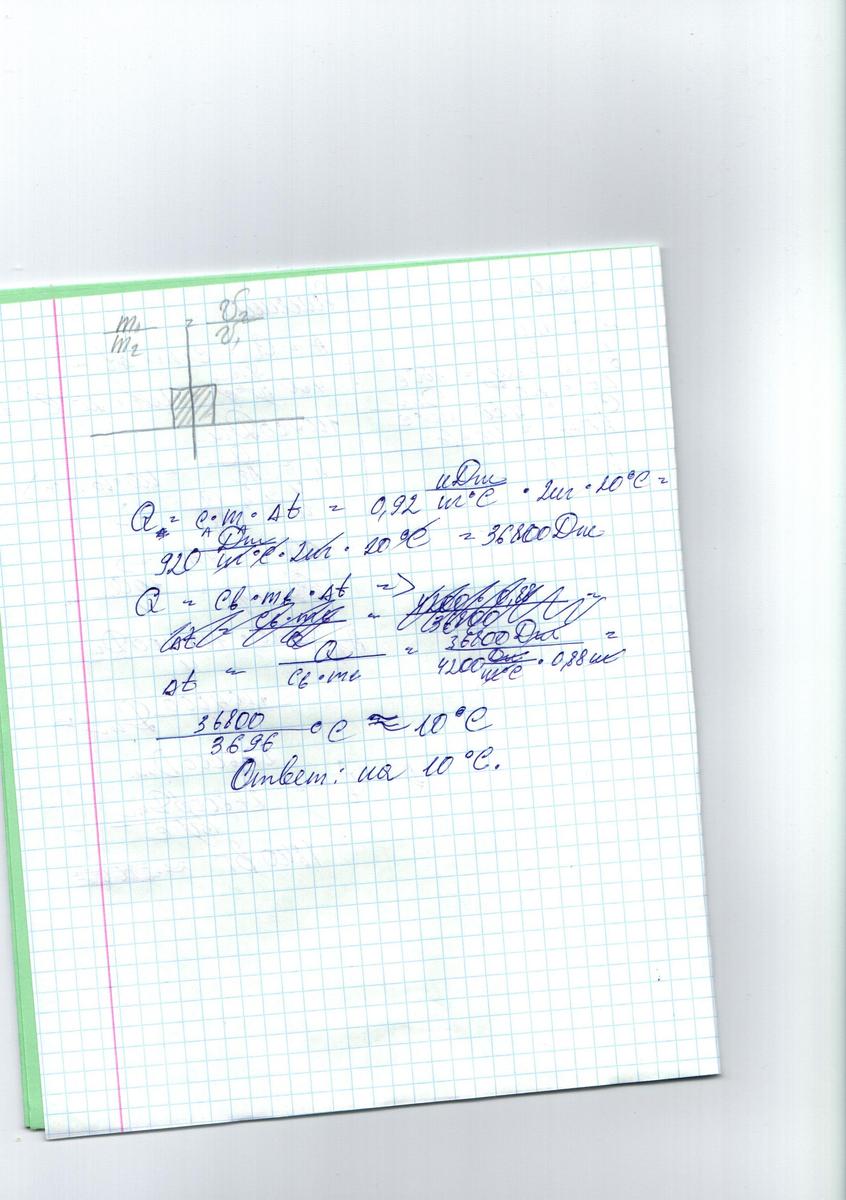 m₁/m₂ = v₂/v₁
Q = c · m · Δt = 0,92 кДж/кг°C · 2кг · 20°C =
920 Дж/кг°C · 2кг · 20°C = 36800 Дж
Q = Cв · mв · Δt =>
Δt = Cв·mв/Q = 4200 · 0,88/36800 =
Δt = Q/Cв·mв = 36800 Дж/4200 Дж/кг°C · 0,88 кг =
36800/3696 °C ≈ 10°C
Ответ: на 10°C.